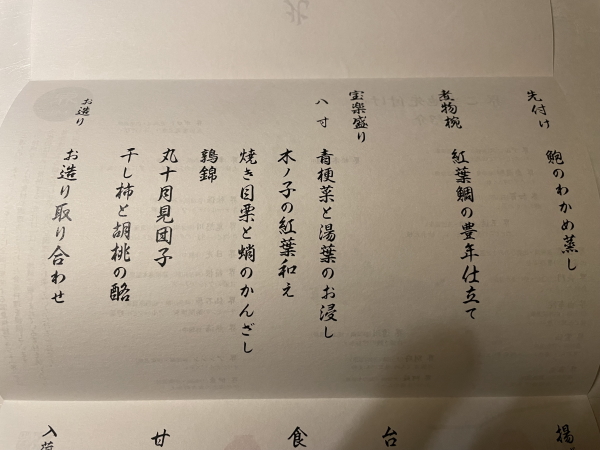 先付け
鮑のわかめ蒸し
煮物椀
紅葉鯛の豊年仕立て
宝楽盛り
八寸
青梗菜と湯葉のお浸し
木ノ子の紅葉和え
焼き目栗と蛸のかんざし
鶉錦
丸十月見団子
干し柿と胡桃の酪
お造り
お造り取り合わせ
揚
台
食
甘
入